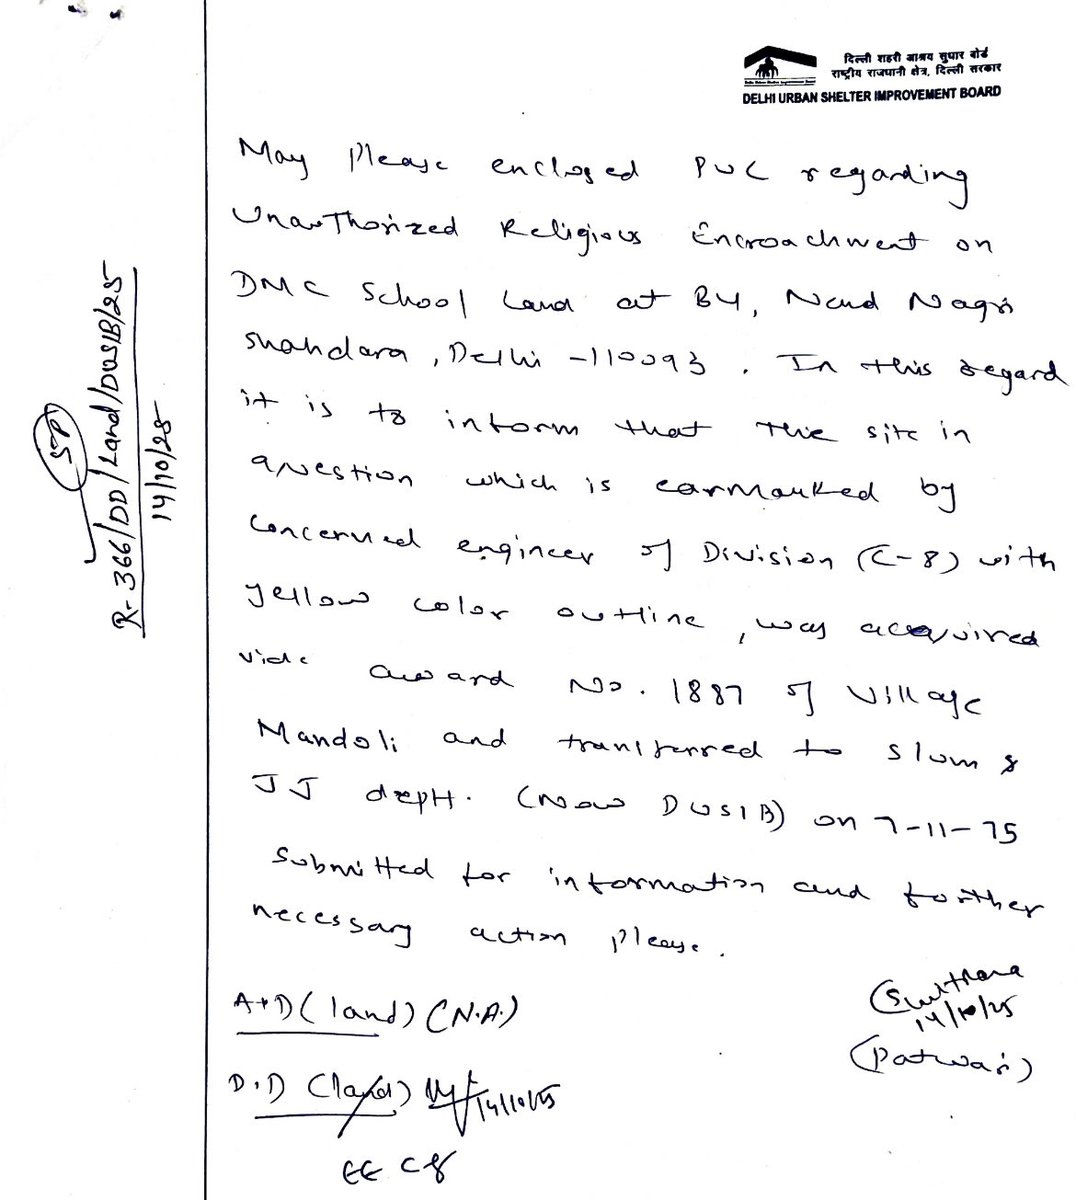 दिल्ली शहरी आश्रय सुधार बोर्ड
राष्ट्रीय राजधानी क्षेत्र, दिल्ली सरकार
DELHI URBAN SHELTER IMPROVEMENT BOARD
May please enclosed PUC regarding
Unauthorized Religious Encroachment on
DMC School Land at B4, Nand Nagri
Shahdara, Delhi -110093. In this regard
it is to inform that the site in
question which is earmarked by
concerned engineer of Division (C-8) with
yellow color outline, was acquired
vide award No. 1887 of Village
Mandoli and transferred to slum &
JJ deptt. (Now DUSIB) on 7-11-75
Submitted for information and further
necessary action please.
14/10/25
(Patwari)
A+D (land) (N.A.)
D.D (land) 14/10/25
EE C8
R-366/DD/Land/DUSIB/25
14/10/25